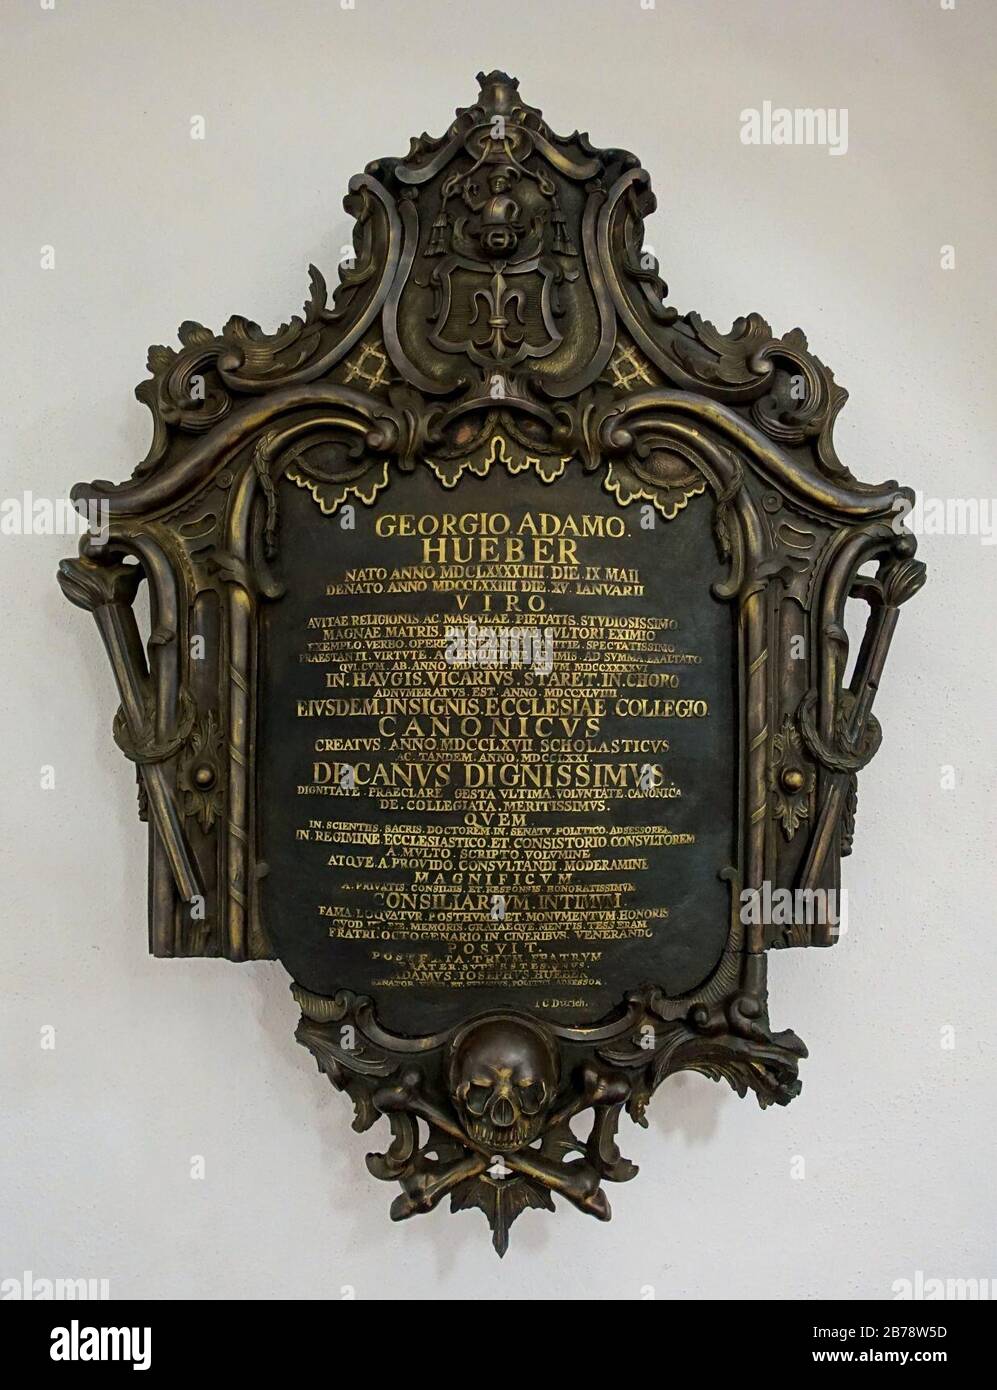 GEORGIO . ADAMO .
HUEBER
NATO ANNO MDCLXXXXIIII DIE IX MAII
DENATO ANNO MDCCLXXIIII DIE XV IANVARII
VIRO
AVITAE RELIGIONIS AC MASCVLAE PIETATIS STVDIOSISSIMO
MAGNAE MATRIS DIVORVMQVE CVLTORI EXIMIO
EXEMPLO VERBO OPERE VENERANDA CANITIE SPECTATISSIMO
PRAESTANTI VIRTVTE AC ERVDITIONE AD SVMMA EXALTATO
QVI CVM AB ANNO MDCCXVI IN ANNVM MDCCXXXXVI
IN . HAVGIS . VICARIVS . STARET . IN . CHORO
ADNVMERATVS EST ANNO MDCCXLVIIII
EIVSDEM . INSIGNIS . ECCLESIAE COLLEGIO
CANONICVS
CREATVS ANNO MDCCLXVII SCHOLASTICVS
AC TANDEM ANNO MDCCLXXI
DECANVS DIGNISSIMVS
DIGNITATE PRAECLARE GESTA VLTIMA VOLVNTATE CANONICA
DE COLLEGIATA MERITISSIMVS
QVEM
IN SCIENTIIS SACRIS DOCTOREM IN SENATV POLITICO ADSESSOREM
IN REGIMINE ECCLESIASTICO ET CONSISTORIO CONSVLTOREM
A MVLTO SCRIPTO VOLVMINE
ATQVE A PROVIDO CONSVLTANDI MODERAMINE
MAGNIFICVM
A PRIVATIS CONSILIIS ET RESPONSIS HONORATISSIMVM
CONSILIARIVM INTIMVM
FAMA LOQVATVR POSTHVMA ET MONVMENTVM HONORIS
QVOD MEMORIS GRATAEQVE MENTIS TESSERAM
FRATRI OCTOGENARIO IN CINERIBVS VENERANDO
POSVIT
POST FATA TRIVM FRATRVM
FRATER SVPERSTES VNVS
ADAMVS IOSEPHVS HUEBER
SENATOR ET POLITICI ADSESSOR
I C Dürich.
alamy
alamy
a
Image ID: 2B78W5D
www.alamy.com